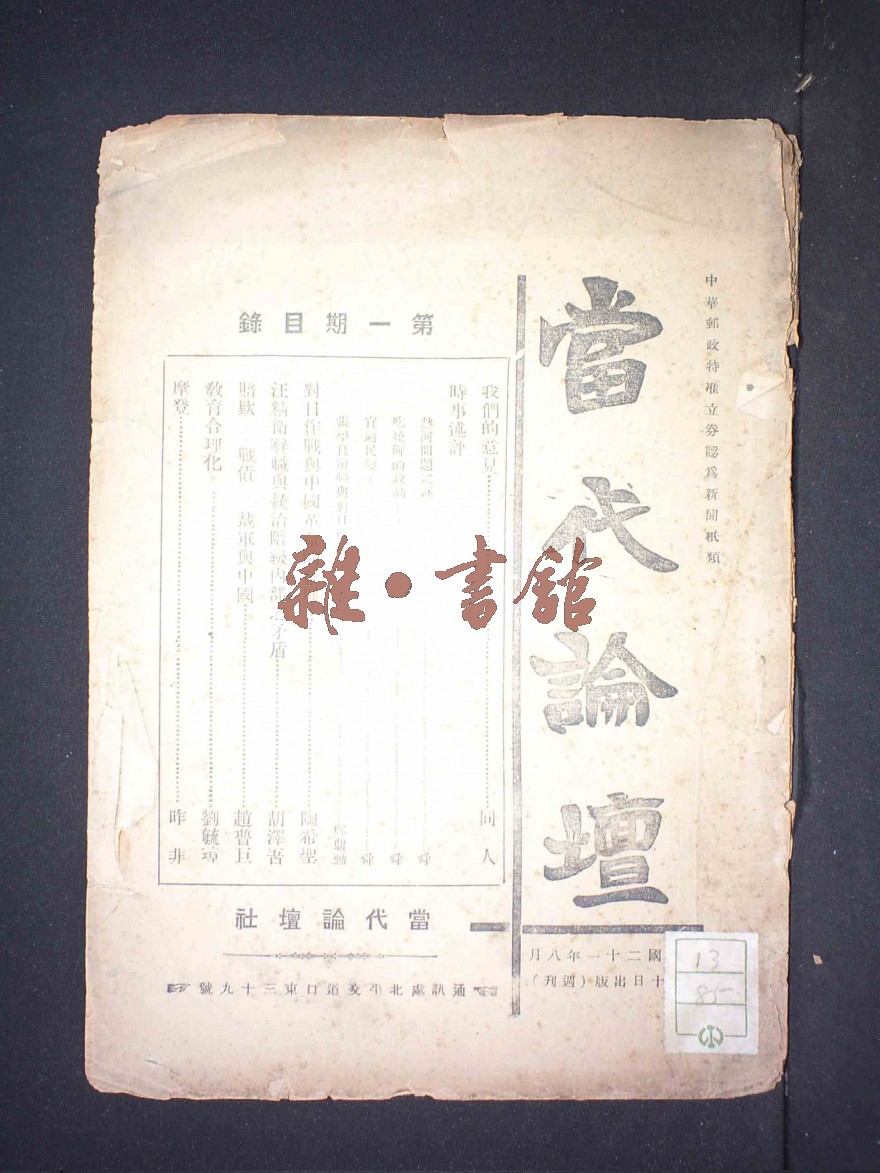 中華郵政特准立券認爲新聞紙類
當代論壇
國二十一年八月
十日出版（週刊）
第一期目錄
我們的意見 同人
時事述評
熱河問題之謎 舜
吃燒餅的政動 舜
官逼民變 舜
張學良辭職與對日
對日作戰與中國革 陶希聖
汪精衛辭職與統治階級內部之矛盾 胡澤吾
賠款 戰債 裁軍與中國 趙普巨
教育合理化 劉毓璋
摩登 昨非
當代論壇社
通訊處北平交道口東三十九號
雜·書館
13
85